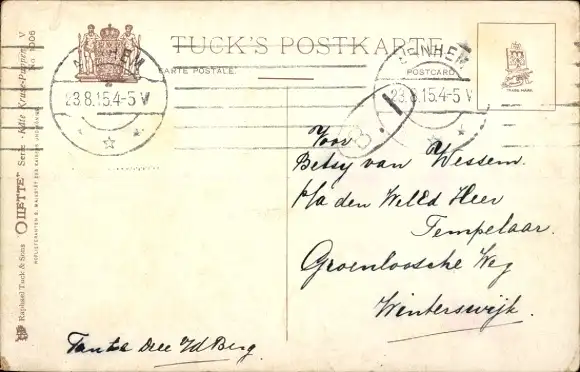 TUCK'S POSTKARTE
CARTE POSTALE.
POSTCARD
TRADE MARK
ARNHEM
23.8.15.4-5 V
ARNHEM
23.8.15.4-5 V
Raphael Tuck & Sons' "OILETTE" Serie „Käte Kruse-Puppen V
No. 1006
HOFLIEFERANTEN S. MAJESTÄT DES KAISERS UND KÖNIGS
Voor
Betsy van Wessem.
p/a den WelEd Heer
Tempelaar.
Groenloosche Weg
Winterswijk.
Tante Dee v/d Berg.